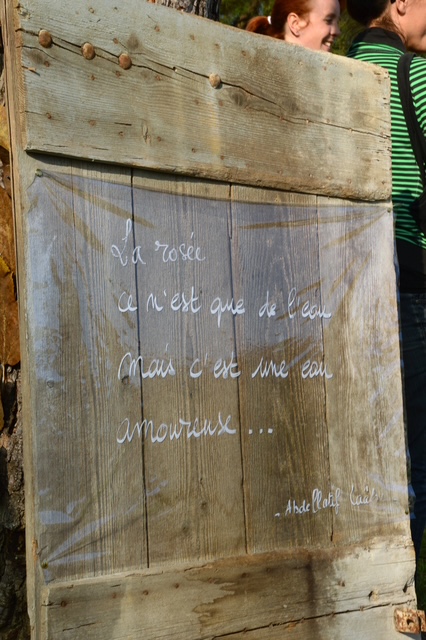 La rosée
ce n'est que de l'eau
Mais c'est une eau
amoureuse...
- Abdellatif